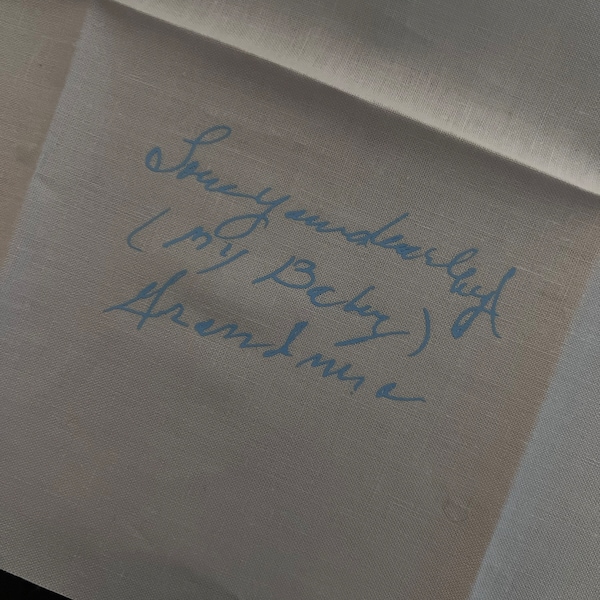 Love you dearly
(My Baby)
Grandma